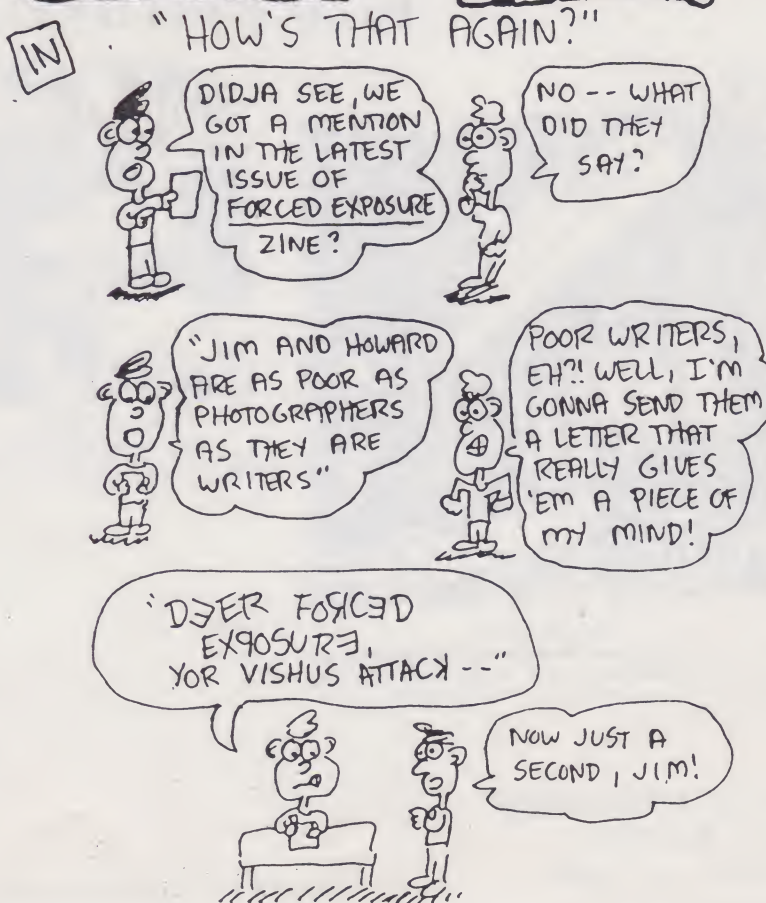 IN
"HOW'S THAT AGAIN?"
DIDJA SEE, WE
GOT A MENTION
IN THE LATEST
ISSUE OF
FORCED EXPOSURE
ZINE?
NO -- WHAT
DID THEY
SAY?
"JIM AND HOWARD
ARE AS POOR AS
PHOTOGRAPHERS
AS THEY ARE
WRITERS"
POOR WRITERS,
EH?! WELL, I'M
GONNA SEND THEM
A LETTER THAT
REALLY GIVES
'EM A PIECE OF
MY MIND!
"DEER FORCED
EXPOSURE,
YOR VISHUS ATTACK --"
NOW JUST A
SECOND, JIM!